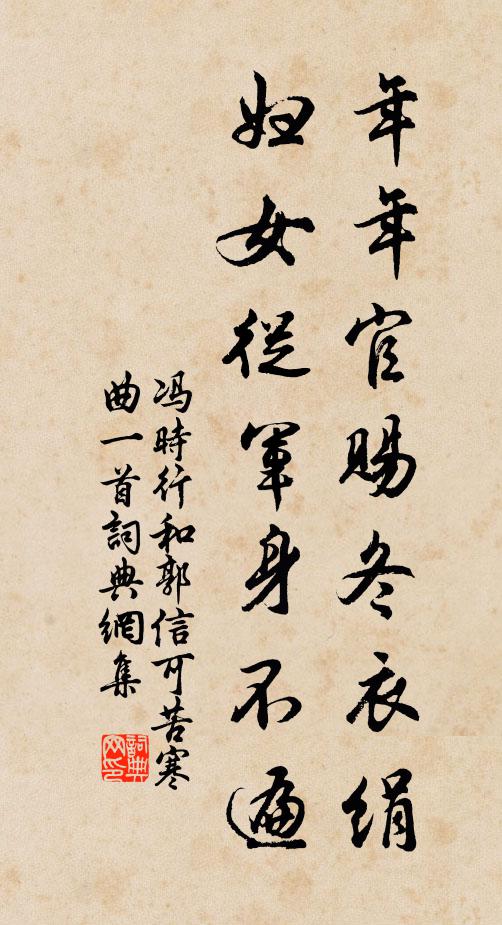 年年官賜冬衣絹
妇女從軍身不遍
冯時行和郭信可苦寒
曲一首詞典網集
詞典
网印